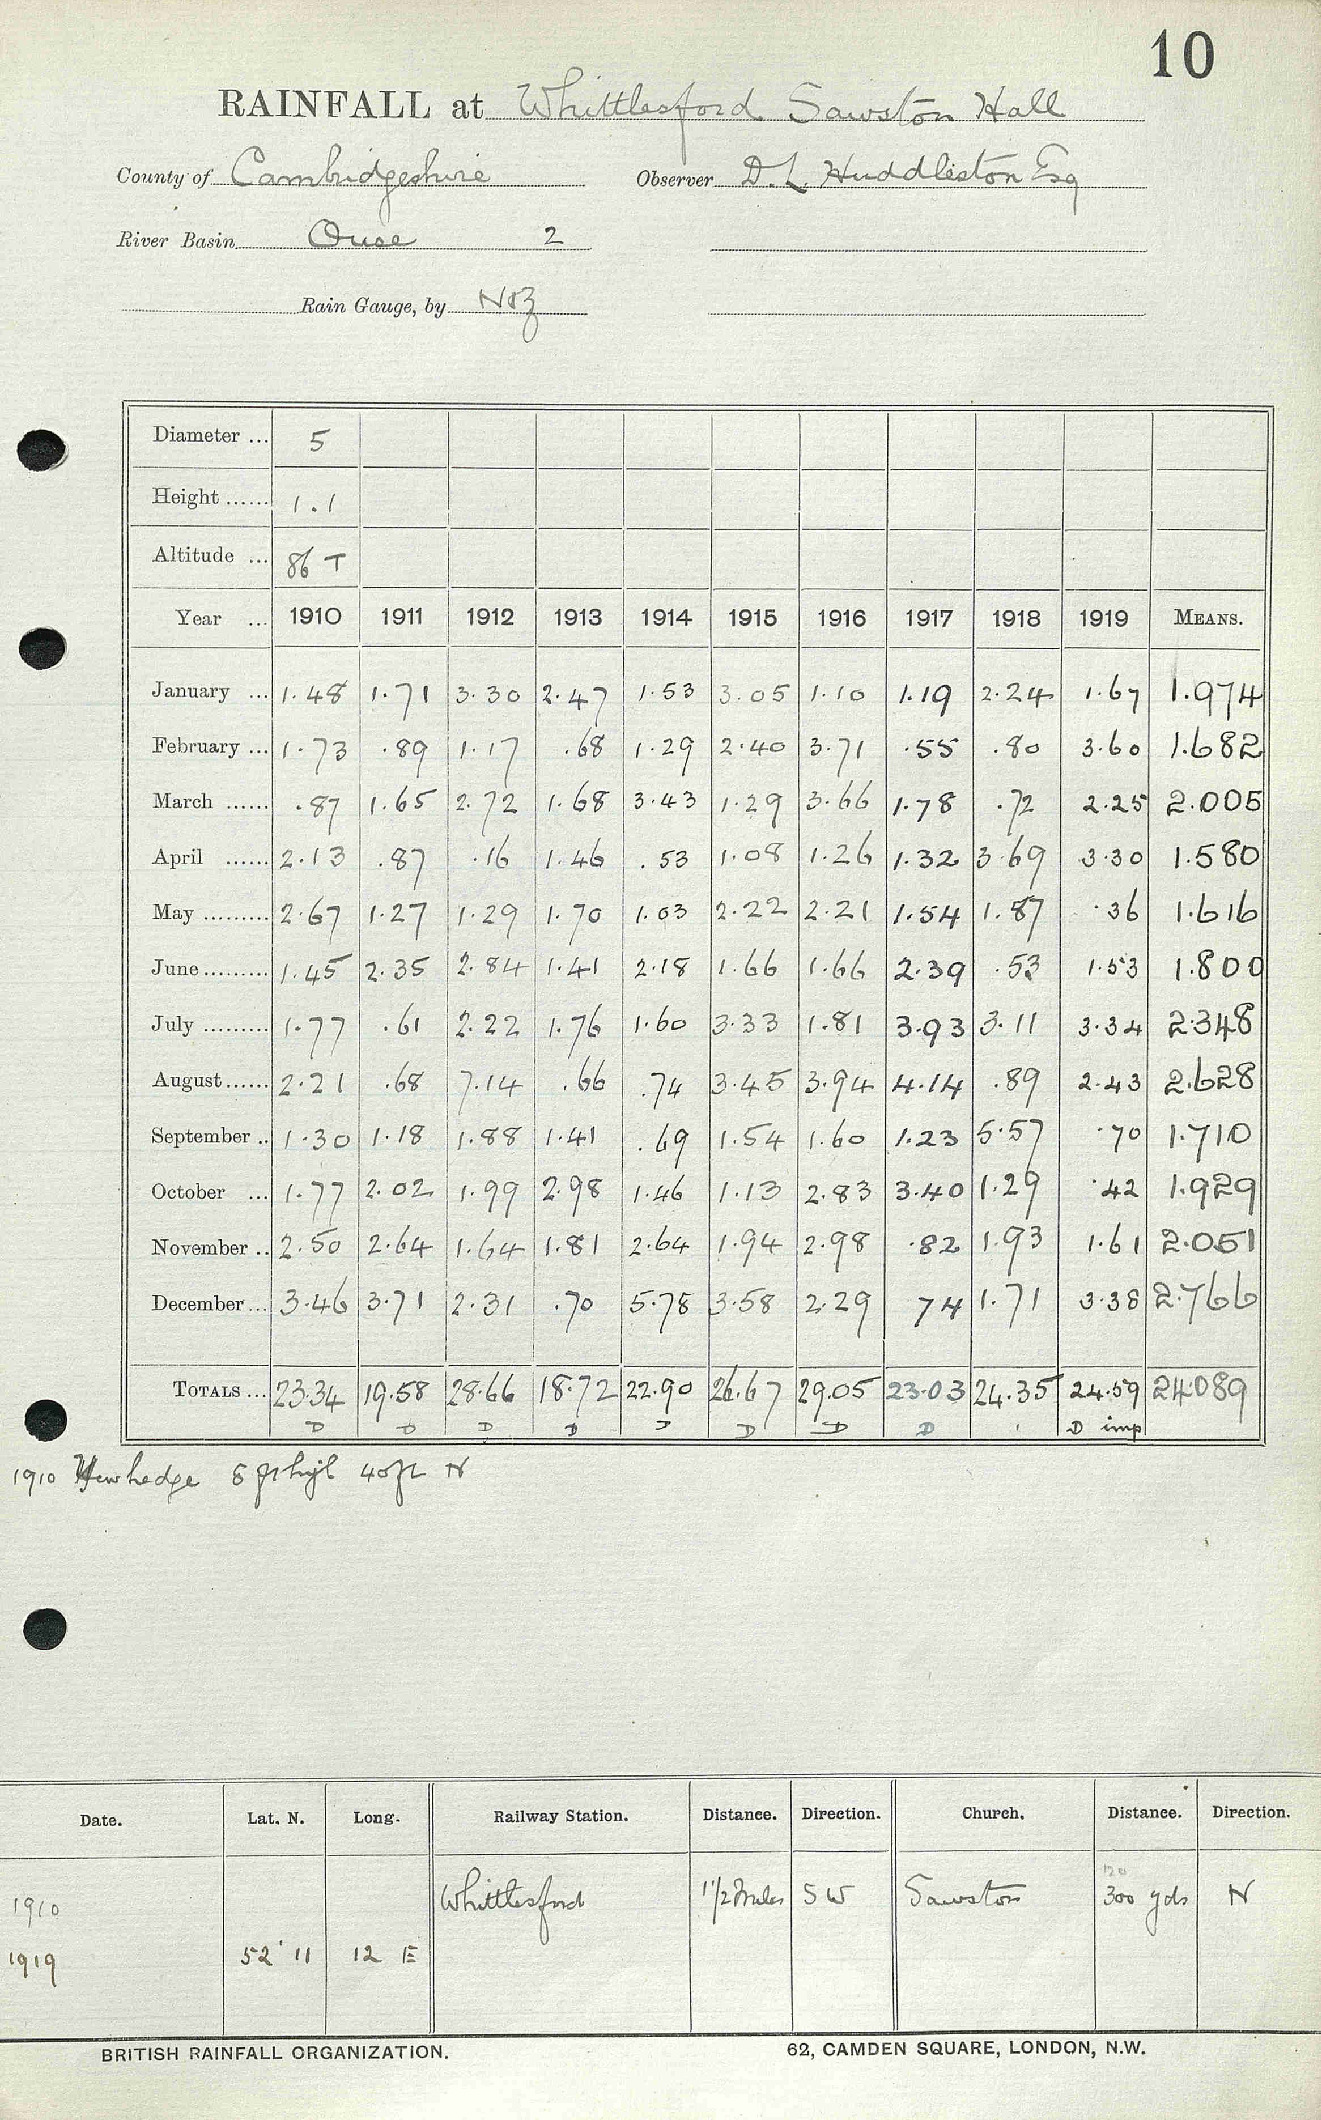 10
RAINFALL at Whittlesford Sawston Hall
County of Cambridgeshire Observer D. L. Huddleston Esq
River Basin Ouse 2
Rain Gauge, by N&Z
Diameter ... 5
Height ...... 1.1
Altitude ... 86 T
Year ... 1910 1911 1912 1913 1914 1915 1916 1917 1918 1919 MEANS.
January ... 1.48 1.71 3.30 2.47 1.53 3.05 1.10 1.19 2.24 1.67 1.974
February ... 1.73 .89 1.17 .68 1.29 2.40 3.71 .55 .80 3.60 1.682
March ...... .87 1.65 2.72 1.68 3.43 1.29 3.66 1.78 .72 2.25 2.005
April ...... 2.13 .87 .16 1.46 .53 1.08 1.26 1.32 3.69 3.30 1.580
May ......... 2.67 1.27 1.29 1.70 1.03 2.22 2.21 1.54 1.87 .36 1.616
June ......... 1.45 2.35 2.84 1.41 2.18 1.66 1.66 2.39 .53 1.53 1.800
July ......... 1.77 .61 2.22 1.76 1.60 3.33 1.81 3.93 3.11 3.34 2.348
August ...... 2.21 .68 7.14 .66 .74 3.45 3.94 4.14 .89 2.43 2.628
September .. 1.30 1.18 1.88 1.41 .69 1.54 1.60 1.23 5.57 .70 1.710
October ... 1.77 2.02 1.99 2.98 1.46 1.13 2.83 3.40 1.29 .42 1.929
November .. 2.50 2.64 1.64 1.81 2.64 1.94 2.98 .82 1.93 1.61 2.051
December ... 3.46 3.71 2.31 .70 5.78 3.58 2.29 74 1.71 3.38 2.766
TOTALS ... 23.34 19.58 28.66 18.72 22.90 26.67 29.05 23.03 24.35 24.59 24.089
D D D D D D D D D imp
1910 Yew hedge 8 ft high 40 ft N
Date. Lat. N. Long. Railway Station. Distance. Direction. Church. Distance. Direction.
120
1910 Whittlesford 1 1/2 Miles SW Sawston 300 yds N
1919 52° 11 12 E
BRITISH RAINFALL ORGANIZATION. 62, CAMDEN SQUARE, LONDON, N.W.